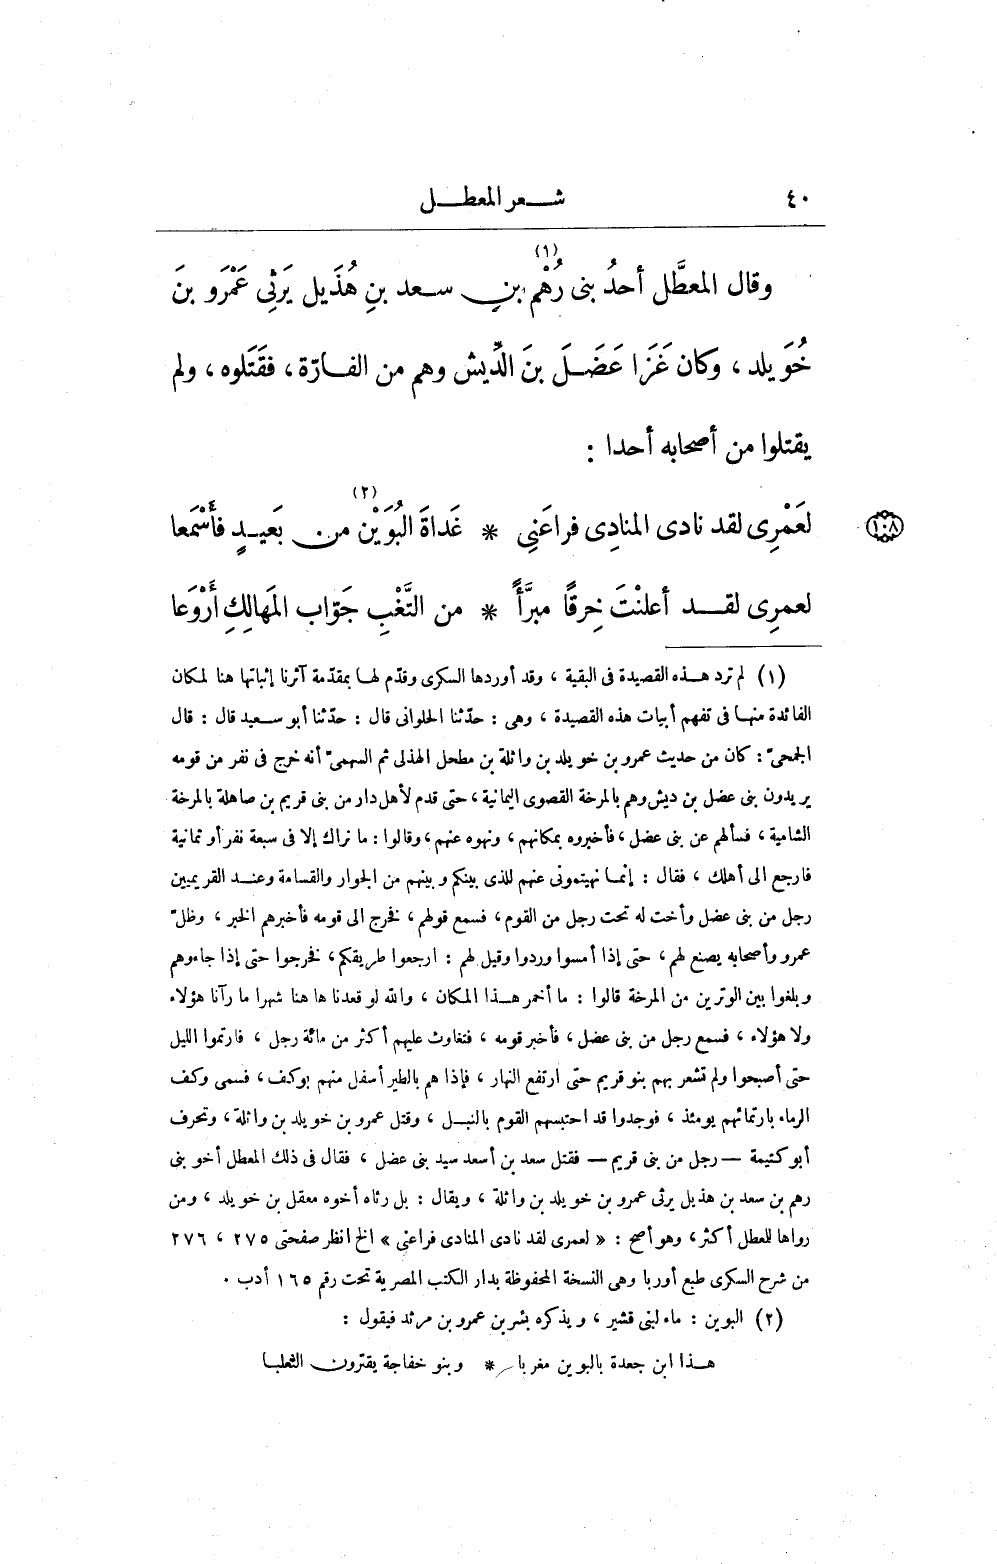 ٤٠ شـعر المعطـل
وقال المعطَّل أحدُ بنى رُهْمِ (١) بنِ سعد بنِ هُذَيل يَرْثِى عَمْرَو بنَ
خُوَيلد ، وكان غَزَا عَضَلَ بنَ الدِّيش وهم من القارّة ، فقَتَلوه ، ولم
يقتلوا من أصحابه أحدا :
١٠٨ لعَمْرِى لقد نادى المنادِى فراعَنِى * غَداةَ البُوَيْن (٢) من بَعيدٍ فأَسْمَعا
لعمرِى لقد أعلنْتَ خِرقًا مبرَّأً * من التَّغْبِ جَوّاب المَهالِكِ أَرْوَعا
(١) لم ترد هذه القصيدة فى البقية ، وقد أوردها السكرى وقدّم لها بمقدّمة آثرنا إثباتها هنا لمكان
الفائدة منها فى تفهم أبيات هذه القصيدة ، وهى : حدّثنا الحلوانى قال : حدّثنا أبو سعيد قال : قال
الجمحىّ : كان من حديث عمرو بن خويلد بن واثلة بن مطحل الهذلى ثم السهمىّ أنه خرج فى نفر من قومه
يريدون بنى عضل بن ديش وهم بالمرخة القصوى اليمانية ، حتى قدم لأهل دار من بنى قريم بن صاهلة بالمرخة
الشامية ، فسألهم عن بنى عضل ، فأخبروه بمكانهم ، ونهوه عنهم ، وقالوا : ما نراك إلا فى سبعة نفر أو ثمانية
فارجع الى أهلك ، فقال : إنما نهيتمونى عنهم للذى بينكم وبينهم من الجوار والقسامة وعند القريميين
رجل من بنى عضل وأخت له تحت رجل من القوم ، فسمع قولهم ، فخرج الى قومه فأخبرهم الخبر ، وظلّ
عمرو وأصحابه يصنع لهم ، حتى إذا أمسوا وردوا وقيل لهم : ارجعوا طريقكم ، فخرجوا حتى إذا جاءوهم
وبلغوا بين الوترين من المرخة قالوا : ما أخمر هذا المكان ، والله لو قعدنا ها هنا شهرا ما رآنا هؤلاء
ولا هؤلاء ، فسمع رجل من بنى عضل ، فأخبر قومه ، فتغاوث عليهم أكثر من مائة رجل ، فارتموا الليل
حتى أصبحوا ولم تشعر بهم بنو قريم حتى ارتفع النهار ، فإذا هم بالطير أسفل منهم بوكف ، فسمى وكف
الرماء بارتمائهم يومئذ ، فوجدوا قد احتبسهم القوم بالنبل ، وقتل عمرو بن خويلد بن واثلة ، وتحرف
أبو كتيمة — رجل من بنى قريم — فقتل سعد بن أسعد سيد بنى عضل ، فقال فى ذلك المعطل أخو بنى
رهم بن سعد بن هذيل يرثى عمرو بن خويلد بن واثلة ، ويقال : بل رثاه أخوه معقل بن خويلد ، ومن
رواها للعطل أكثر ، وهو أصح : « لعمرى لقد نادى المنادى فراعنى » الخ انظر صفحتى ٢٧٥ ، ٢٧٦
من شرح السكرى طبع أوربا وهى النسخة المحفوظة بدار الكتب المصرية تحت رقم ١٦٥ أدب .
(٢) البوين : ماء لبنى قشير ، ويذكره بشر بن عمرو بن مرثد فيقول :
هذا ابن جعدة بالبوين مغربا * وبنو خفاجة يقترون الثعلبا